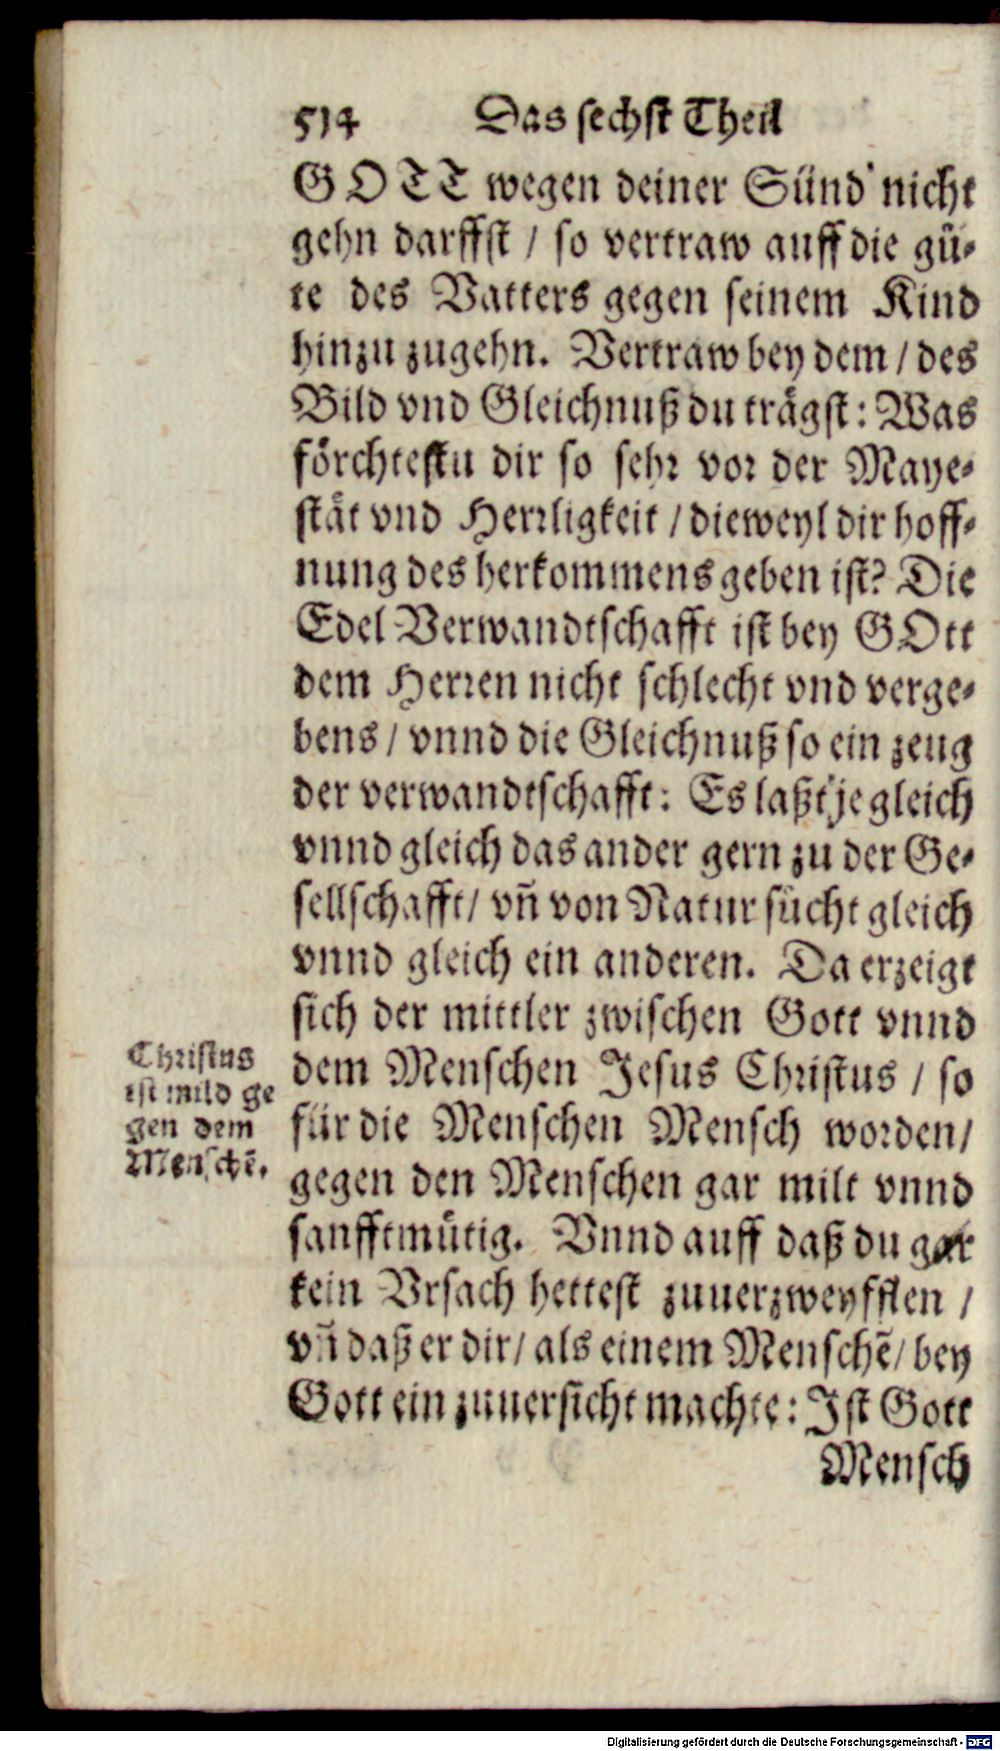 514 Das sechst Theil
GOTT wegen deiner Sünd nicht
gehn darffst / so vertraw auff die gü-
te des Vatters gegen seinem Kind
hinzu zugehn. Vertraw bey dem / des
Bild vnd Gleichnuß du trägst: Was
förchtestu dir so sehr vor der Maye-
stät vnd Herrligkeit / dieweyl dir hoff-
nung des herkommens geben ist? Die
Edel Verwandtschafft ist bey GOtt
dem Herren nicht schlecht vnd verge-
bens / vnnd die Gleichnuß so ein zeug
der verwandtschafft: Es laßt je gleich
vnnd gleich das ander gern zu der Ge-
sellschafft / vñ von Natur sücht gleich
vnnd gleich ein anderen. Da erzeigt
sich der mittler zwischen Gott vnnd
dem Menschen Jesus Christus / so
für die Menschen Mensch worden /
gegen den Menschen gar milt vnnd
sanfftmütig. Vnnd auff daß du gar
kein Vrsach hettest zuuerzweyfflen /
vñ daß er dir / als einem Menschẽ / bey
Gott ein zuuersicht machte: Ist Gott
Mensch
Christus
ist mild ge
gen dem
Menschẽ.
Digitalisierung gefördert durch die Deutsche Forschungsgemeinschaft - DFG